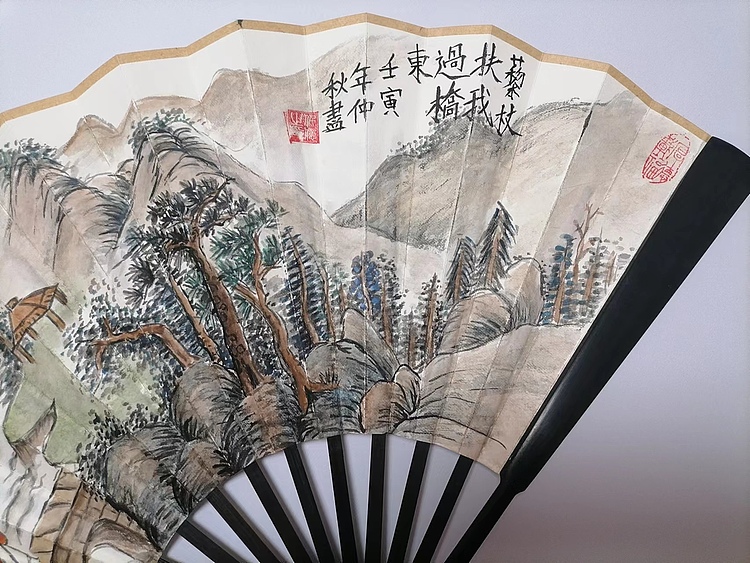 藜杖
扶我
過橋
東
壬寅
年仲
秋畫